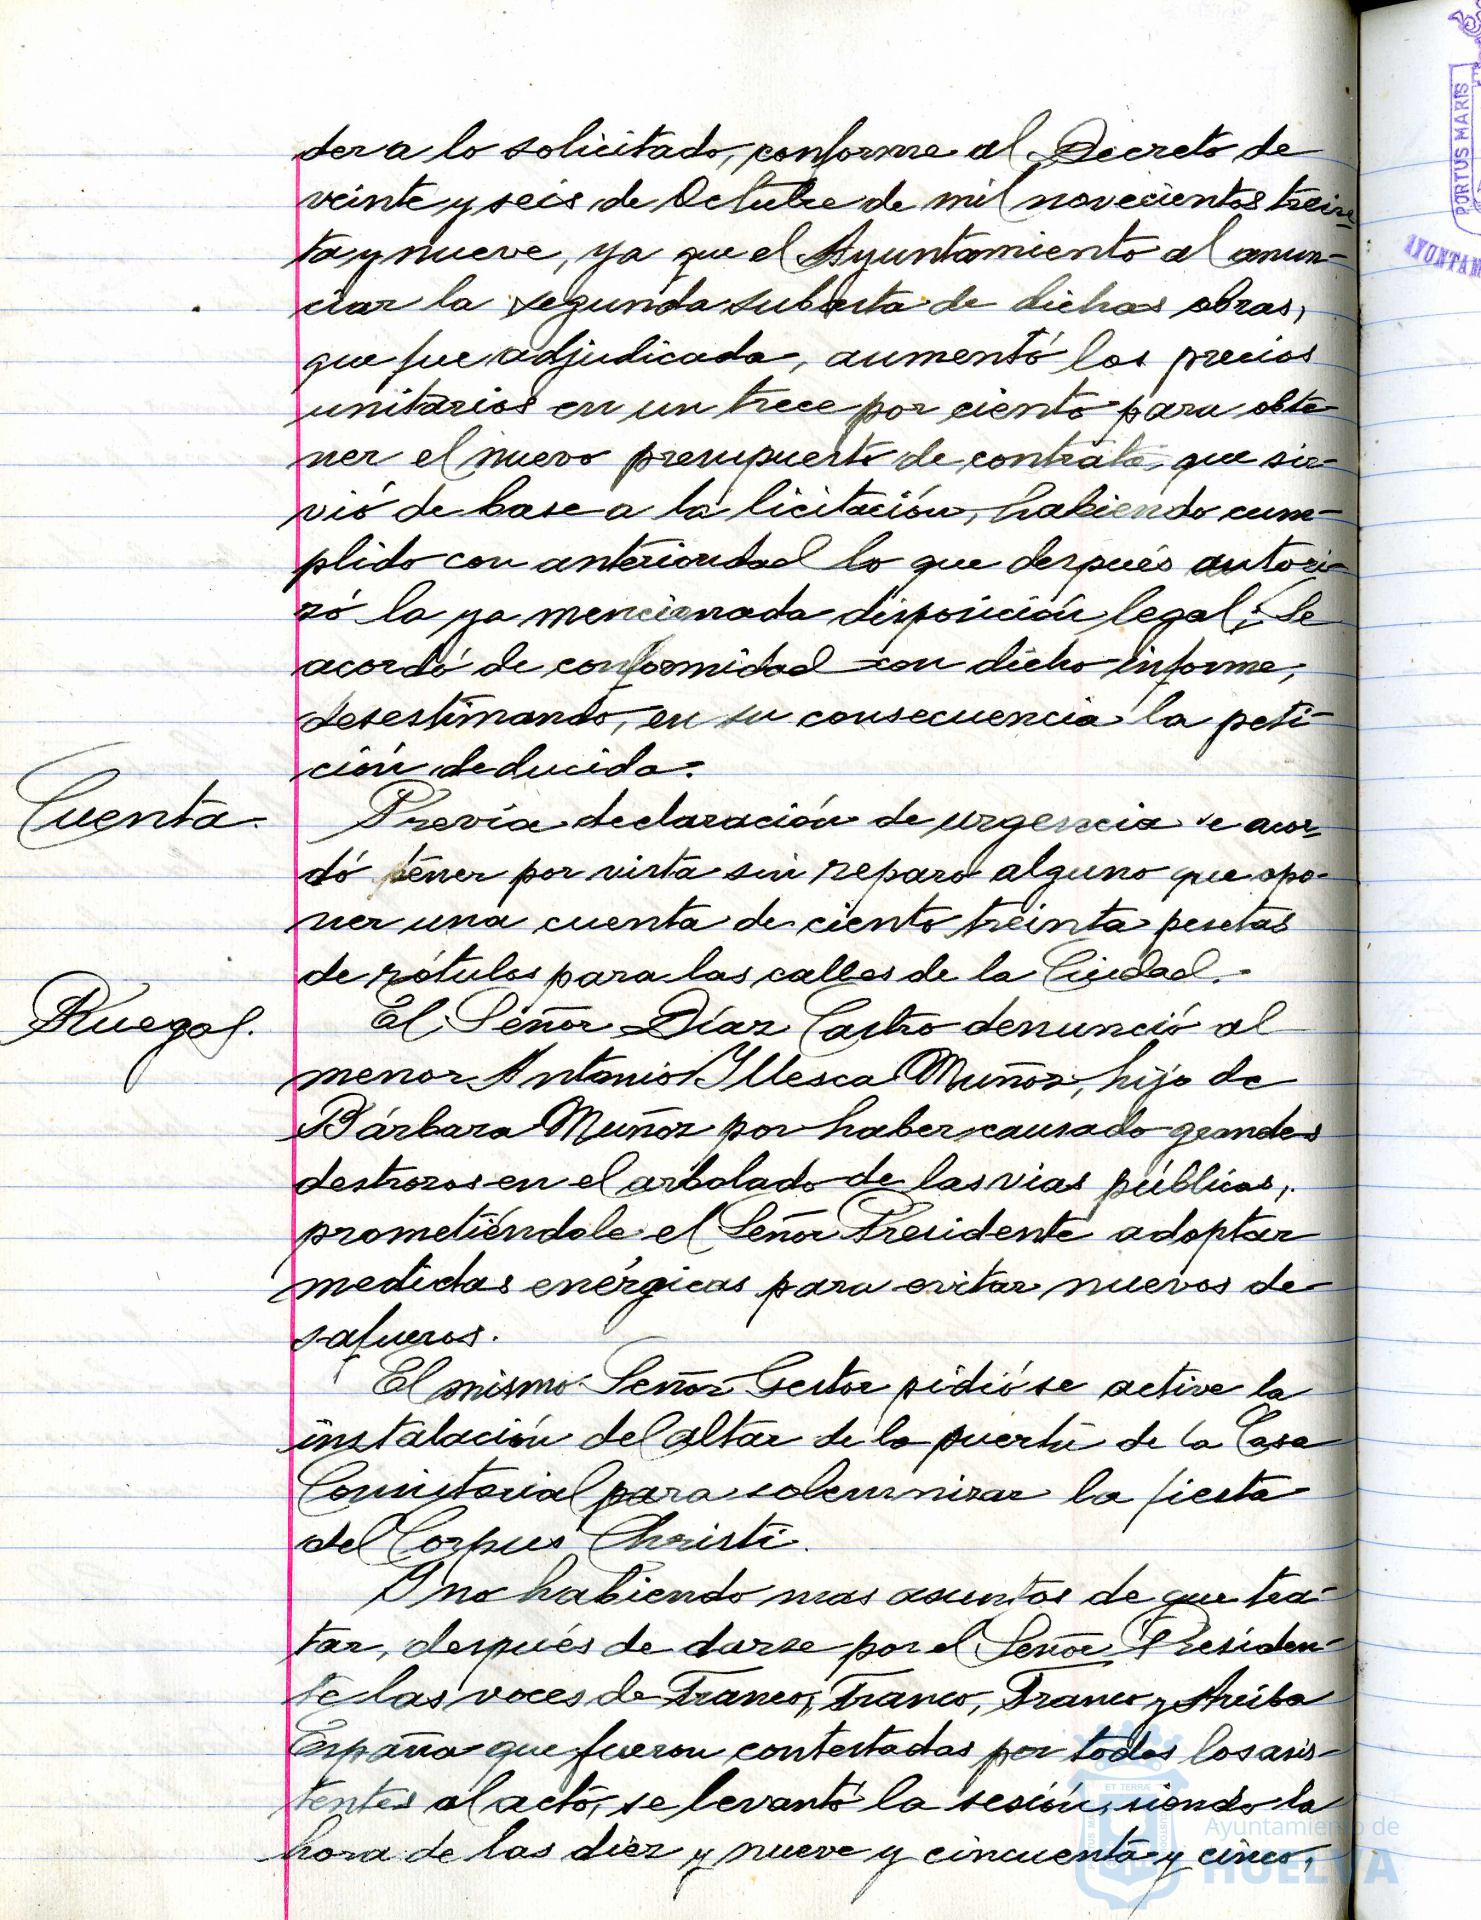 der a lo solicitado, conforme al Decreto de
veinte y seis de Octubre de mil novecientos trein-
ta y nueve, ya que el Ayuntamiento al anun-
ciar la segunda subasta de dichas obras,
que fue adjudicada, aumentó los precios
unitarios en un trece por ciento para obte-
ner el nuevo presupuesto de contrata, que sir-
vió de base a la licitación, habiendo cum-
plido con anterioridad lo que después autori-
zó la ya mencionada disposición legal; Se
acordó de conformidad con dicho informe,
desestimando, en su consecuencia la peti-
ción deducida.
Cuenta.
Previa declaración de urgencia se acor-
dó tener por vista sin reparo alguno que opo-
ner una cuenta de ciento treinta pesetas
de rótulos para las calles de la Ciudad.
Ruegos.
El Señor Díaz Castro denunció al
menor Antonio Yllesca Muñoz, hijo de
Bárbara Muñoz por haber causado grandes
destrozos en el arbolado de las vias públicas,
prometiéndole el Señor Presidente adoptar
medidas enérgicas para evitar nuevos de-
safueros.
El mismo Señor Gestor pidió se active la
instalación del altar de la puerta de la Casa
Consistorial para solemnizar la fiesta
del Corpus Christi.
Y no habiendo mas asuntos de que tra-
tar, después de darse por el Señor Presiden-
te las voces de Franco, Franco, Franco y Arriba
España que fueron contestadas por todos los asis-
tentes al acto, se levantó la sesión, siendo la
hora de las diez y nueve y cincuenta y cinco,
PORTUS MARIS
AYUNTAM
ET TERRÆ
Ayuntamiento de
HUELVA